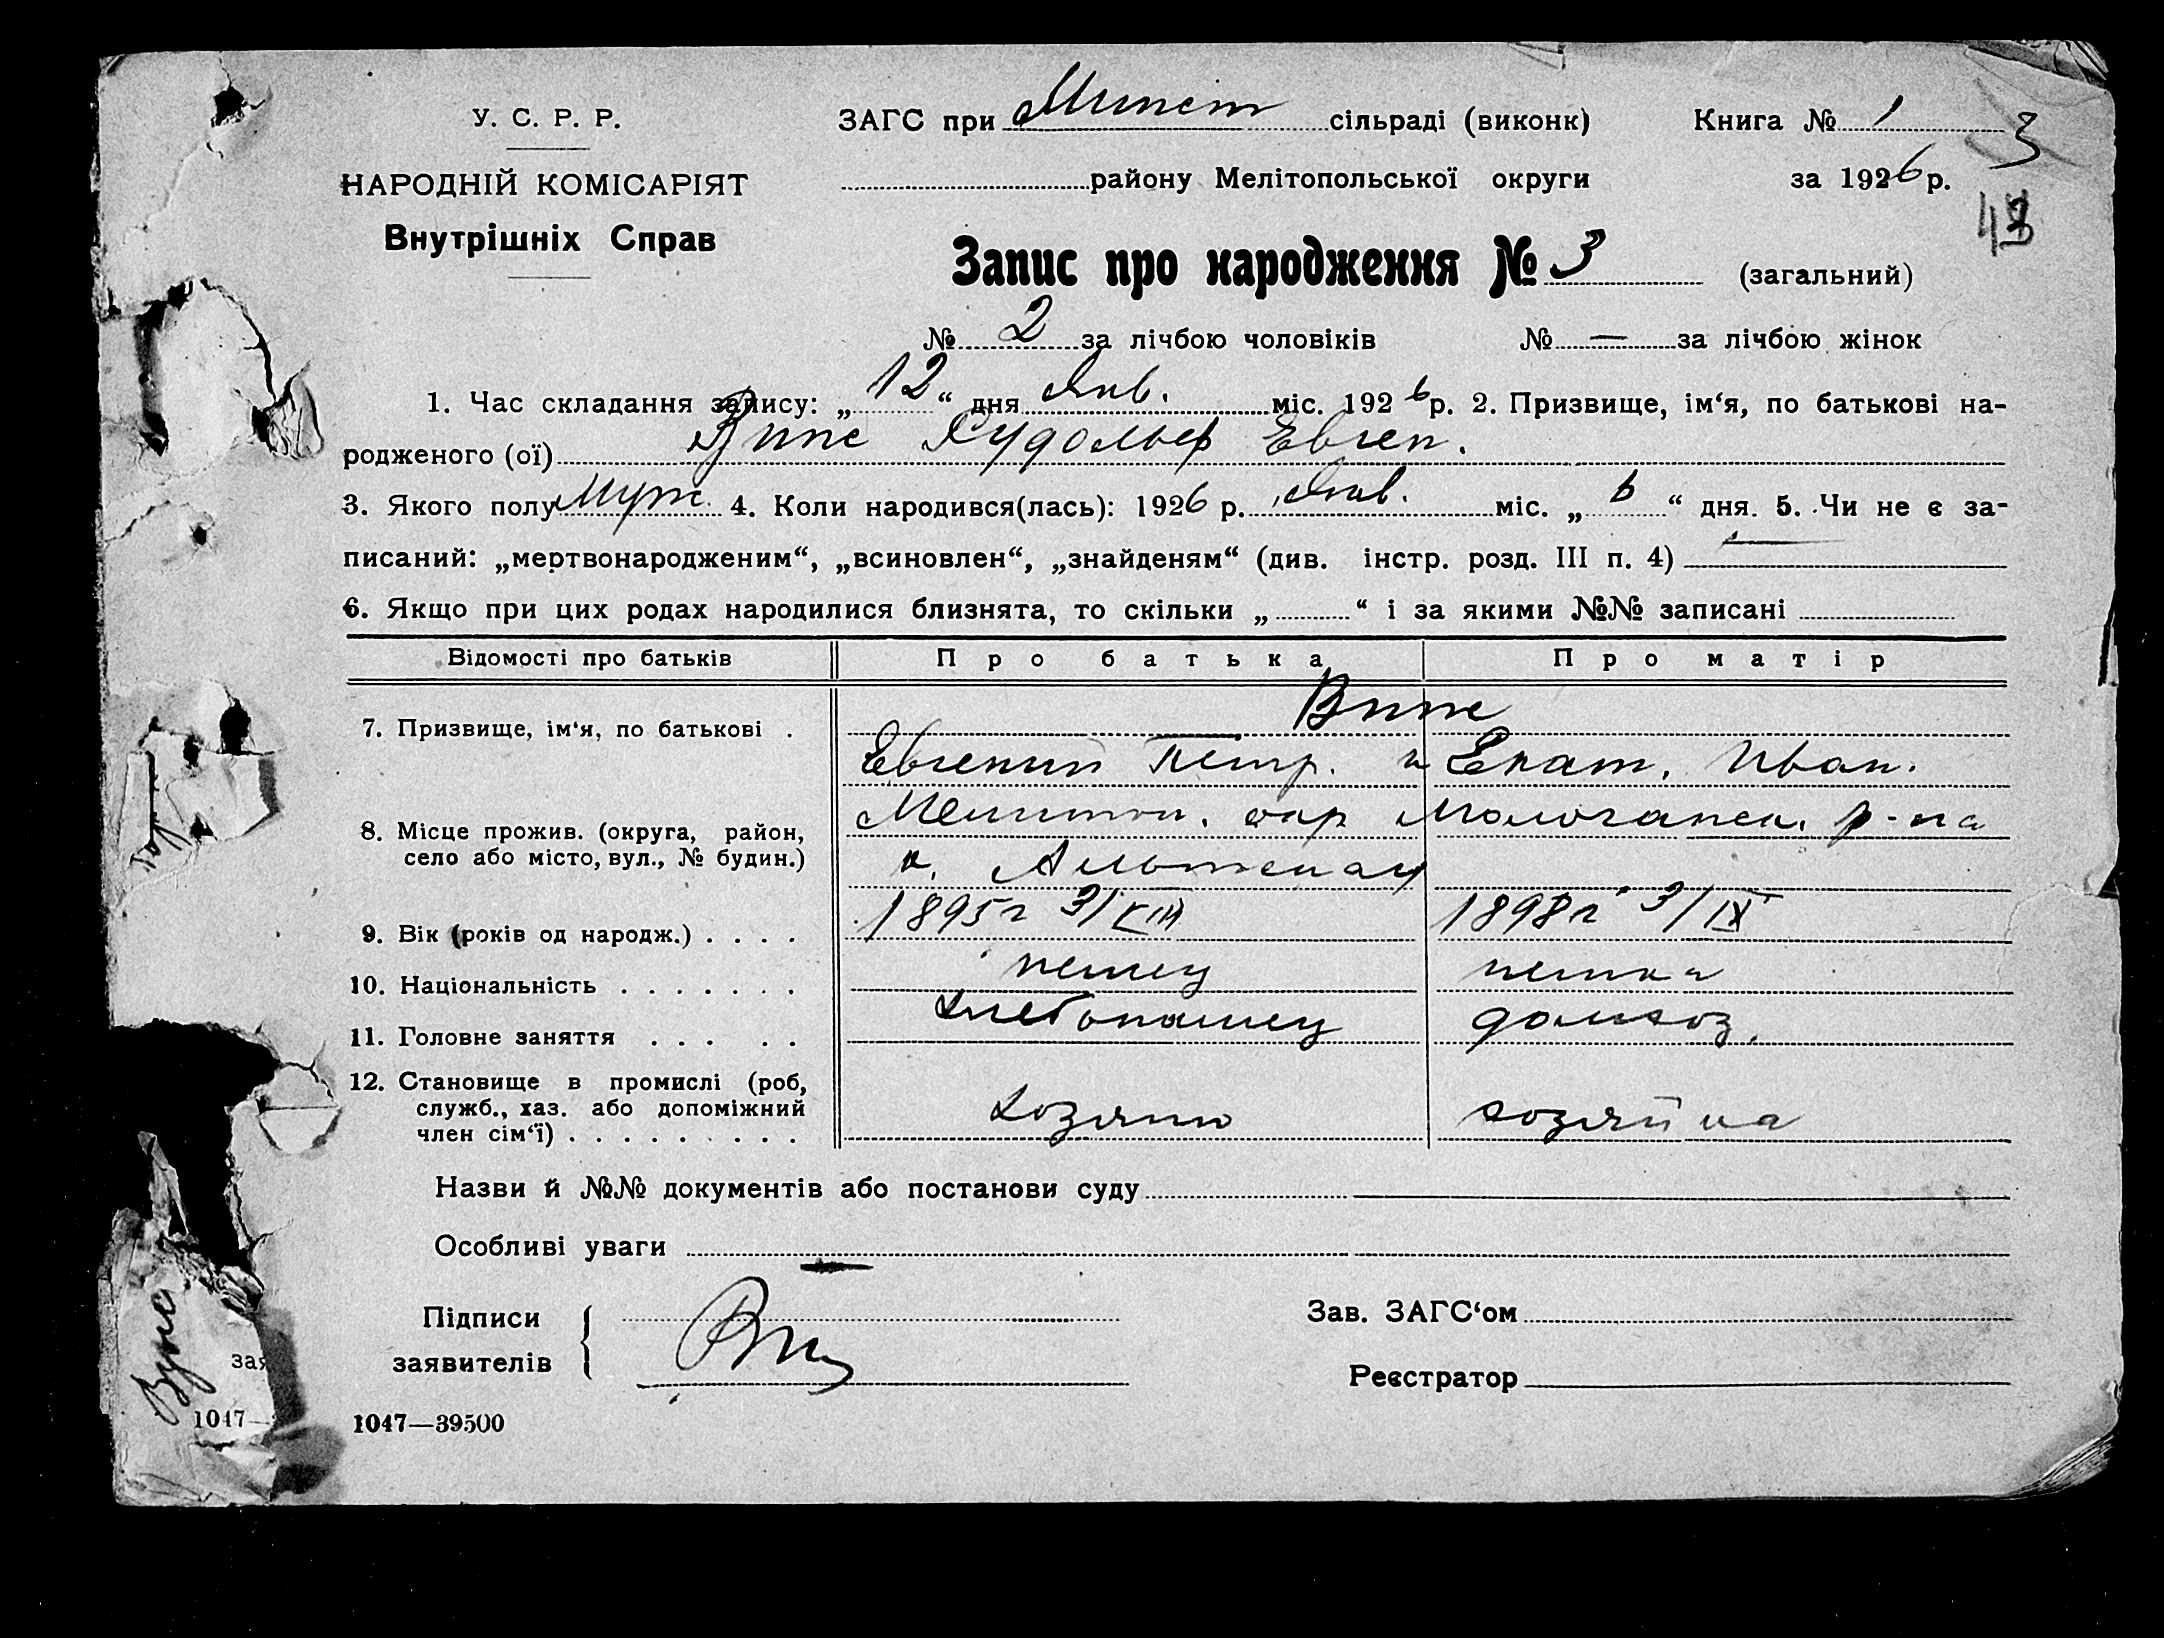 У. С. Р. Р.
НАРОДНІЙ КОМІСАРІЯТ
Внутрішніх Справ
ЗАГС при сільраді (виконк)
Книга № 1
3
району Мелітопольської округи
за 1926 р.
43
Запис про народження № 3 (загальний)
№ 2 за лічбою чоловіків № — за лічбою жінок
1. Час складання запису: „ 12 “ дня Янв. міс. 1926 р. 2. Призвище, ім‘я, по батькові на-
родженого (ої) Рудольф Евген.
3. Якого полу Муж. 4. Коли народився(лась): 1926 р. Янв. міс. „ 6 “ дня. 5. Чи не є за-
писаний: „мертвонародженим“, „всиновлен“, „знайденям“ (див. інстр. розд. III п. 4) —
6. Якщо при цих родах народилися близнята, то скільки „ “ і за якими №№ записані
Відомості про батьків Про батька Про матір
7. Призвище, ім‘я, по батькові .
Евгений Петр. и Екат. Иван.
8. Місце прожив. (округа, район,
село або місто, вул., № будин.)
Мелитоп. окр Молочанск. р-на
к. Альтенау
9. Вік (років од народж.) . . . . 1895 г 3/VIII 1898 г 3/IX
10. Національність . . . . . . . немец немка
11. Головне заняття . . . . . Хлебопашец домхоз.
12. Становище в промислі (роб,
служб., хаз. або допоміжний
член сім‘ї) . . . . . . . . . хозяин хозяйка
Назви й №№ документів або постанови суду
Особливі уваги —
Підписи
заявителів
Зав. ЗАГС‘ом
Реєстратор
зая
1047—
1047—39500